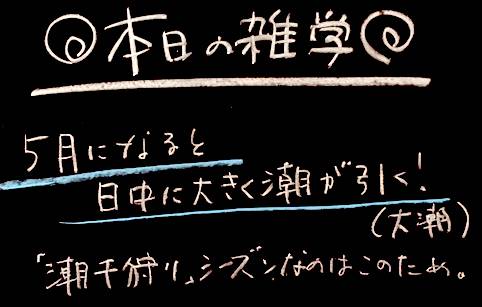 本日の雑学
5月になると
日中に大きく潮が引く!
(大潮)
「潮干狩り」シーズンなのはこのため。